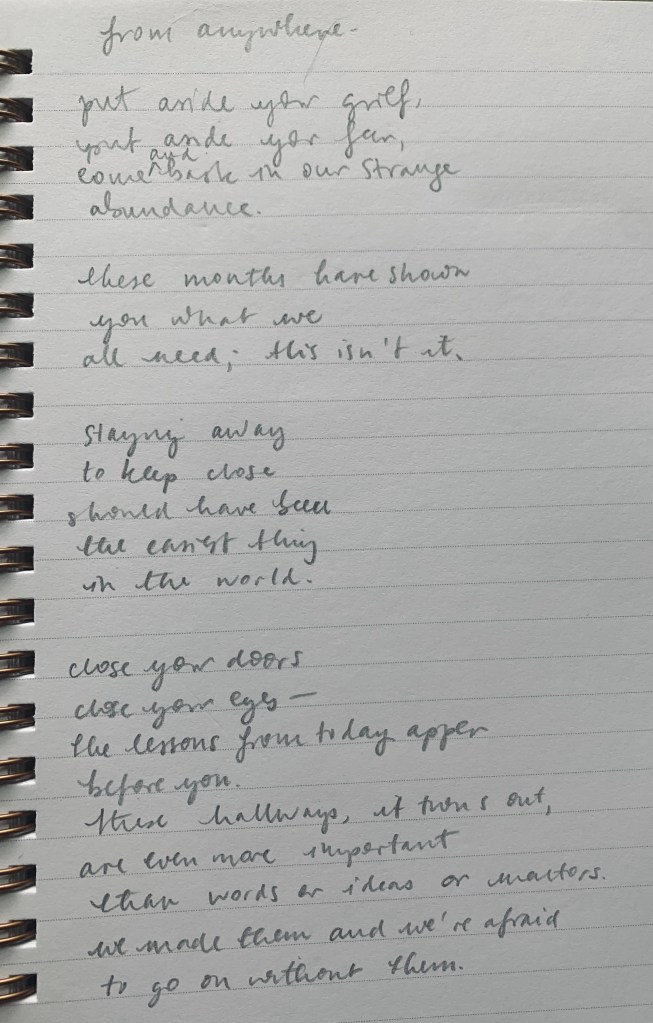 from anywhere-
put aside your grief,
put aside your fear,
and
come ^ back in our strange
abundance.
these months have shown
you what we
all need; this isn't it.
staying away
to keep close
should have been
the easiest thing
in the world.
close your doors
close your eyes—
the lessons from today appear
before you.
these hallways, it turns out,
are even more important
than words or ideas or mentors.
we made them and we're afraid
to go on without them.